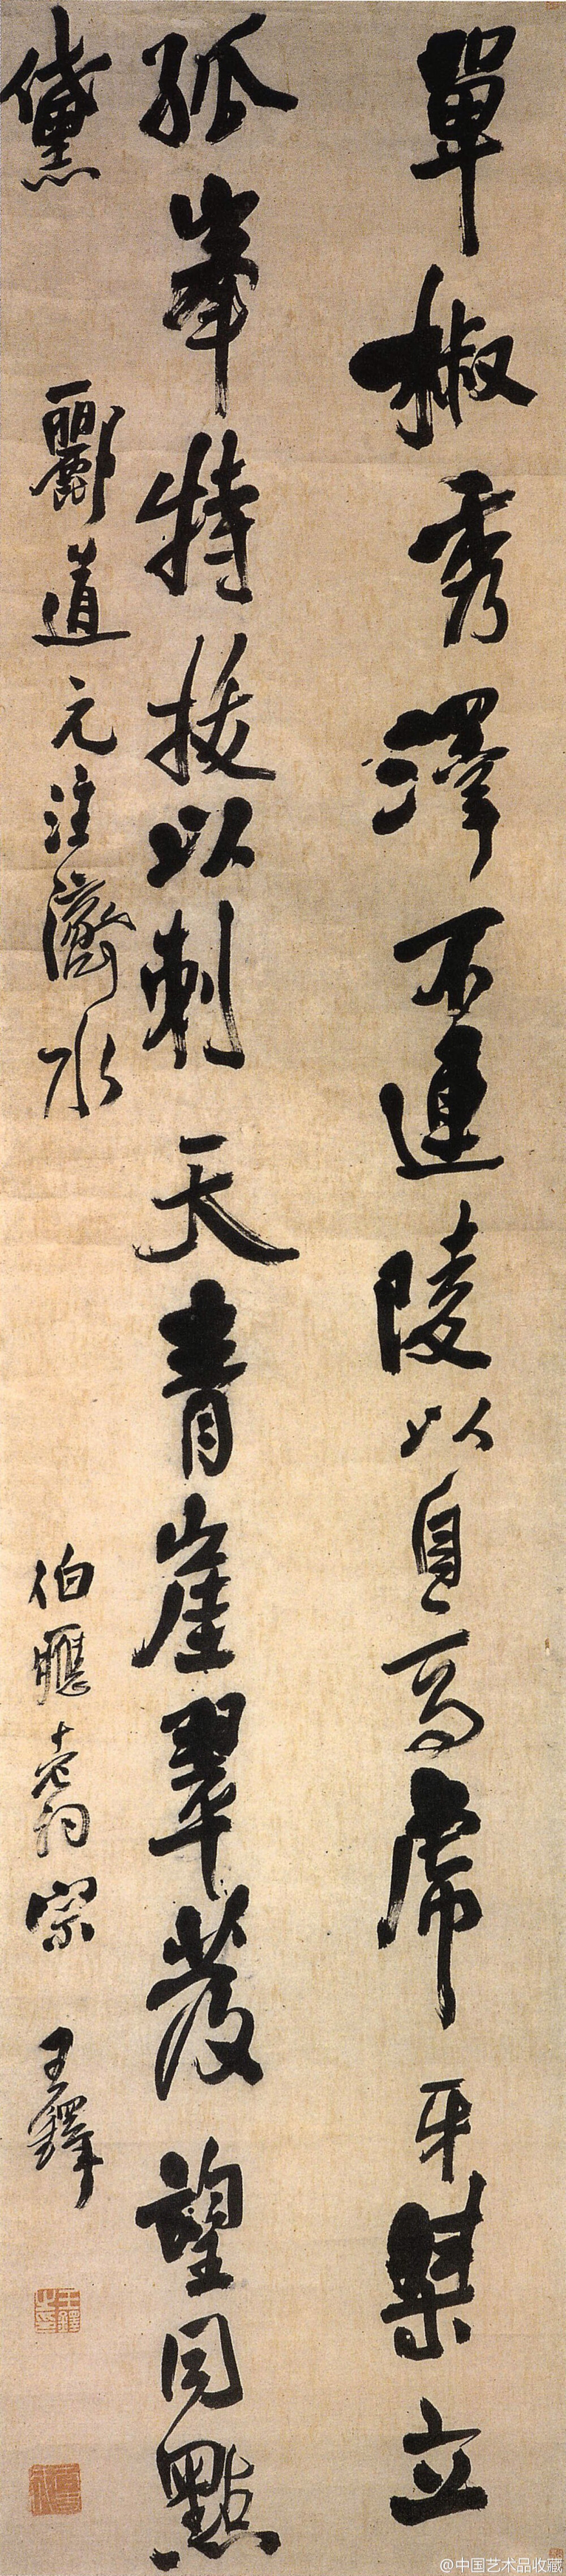 單椒秀澤不連陵以自高虎牙桀立
孤峯特拔以刺天青崖翠發望同點
黛 酈道元注濟水 伯應老詞宗 王鐸
王鐸之印
@中国艺术品收藏